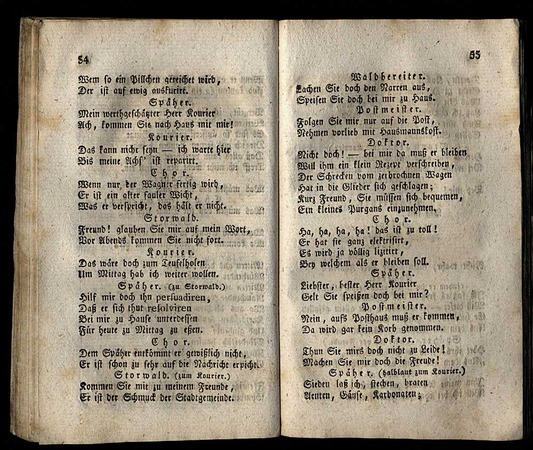 54
Wem so ein Pillchen gereichet wird,
Der ist auf ewig auskurirt.
Späher.
Mein werthgeschätzter Herr Kourier
Ach, kommen Sie nach Haus mit mir!
Kourier.
Das kann nicht seyn — ich warte hier
Bis meine Achs' ist reparirt.
Chor.
Wenn nur der Wagner fertig wird,
Er ist ein alter fauler Wicht,
Was er verspricht, das hält er nicht.
Storwald.
Freund! glauben Sie mir auf mein Wort,
Vor Abends kommen Sie nicht fort.
Kourier.
Das wäre doch zum Teufelholen
Um Mittag hab ich weiter wollen.
Späher. (zu Storwald.)
Hilf mir doch ihn persuadiren,
Daß er sich thut resolviren
Bei mir zu Hause unterdessen
Für heute zu Mittag zu essen.
Chor.
Dem Späher entkömmt er gewißlich nicht,
Er ist schon zu sehr auf die Nachricht erpicht.
Storwald. (zum Kourier.)
Kommen Sie mit zu meinem Freunde,
Er ist der Schmuck der Stadtgemeinde.
55
Waldbereiter.
Lachen Sie doch den Narren aus,
Speisen Sie doch bei mir zu Haus.
Postmeister.
Folgen Sie mir nur auf die Post,
Nehmen vorlieb mit Hausmannskost.
Doktor.
Nicht doch! — bei mir da muß er bleiben
Will ihm ein klein Rezept verschreiben,
Der Schrecken vom zerbrochnen Wagen
Hat in die Glieder sich geschlagen;
Kurz Freund, Sie müssen sich bequemen,
Ein kleines Purgans einzunehmen.
Chor.
Ha, ha, ha, ha! das ist zu toll!
Er hat sie ganz elektrisirt,
Es wird ja völlig lizitirt,
Bey welchem als er bleiben soll.
Späher.
Liebster, bester Herr Kourier
Gelt Sie speißen doch bei mir?
Postmeister.
Nein, aufs Posthaus muß er kommen,
Da wird gar kein Korb genommen.
Doktor.
Thun Sie mirs doch nicht zu Leide!
Machen Sie mir doch die Freude!
Späher. (halblaut zum Kourier.)
Sieden laß ich, stechen, braten
Aenten, Gänse, Karbonaten;